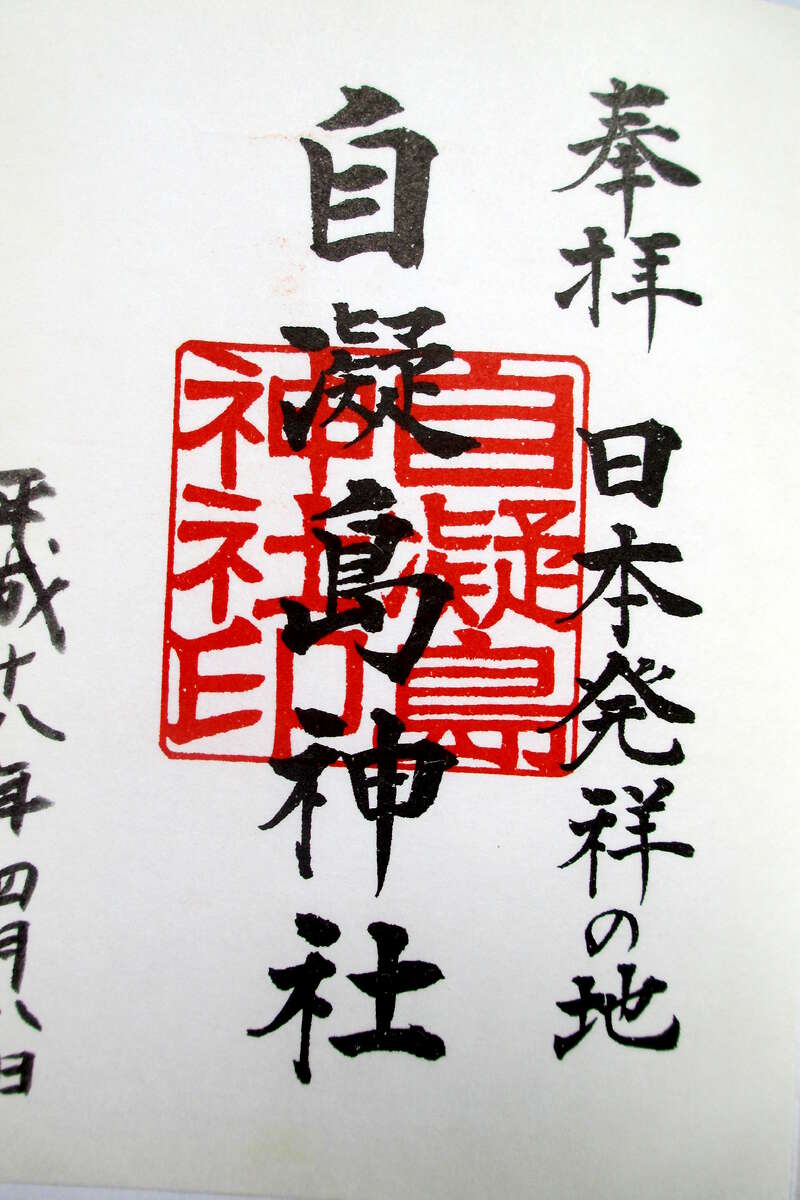 奉拝 日本発祥の地
自凝島神社
自凝島
神社印
平成十八年四月八日